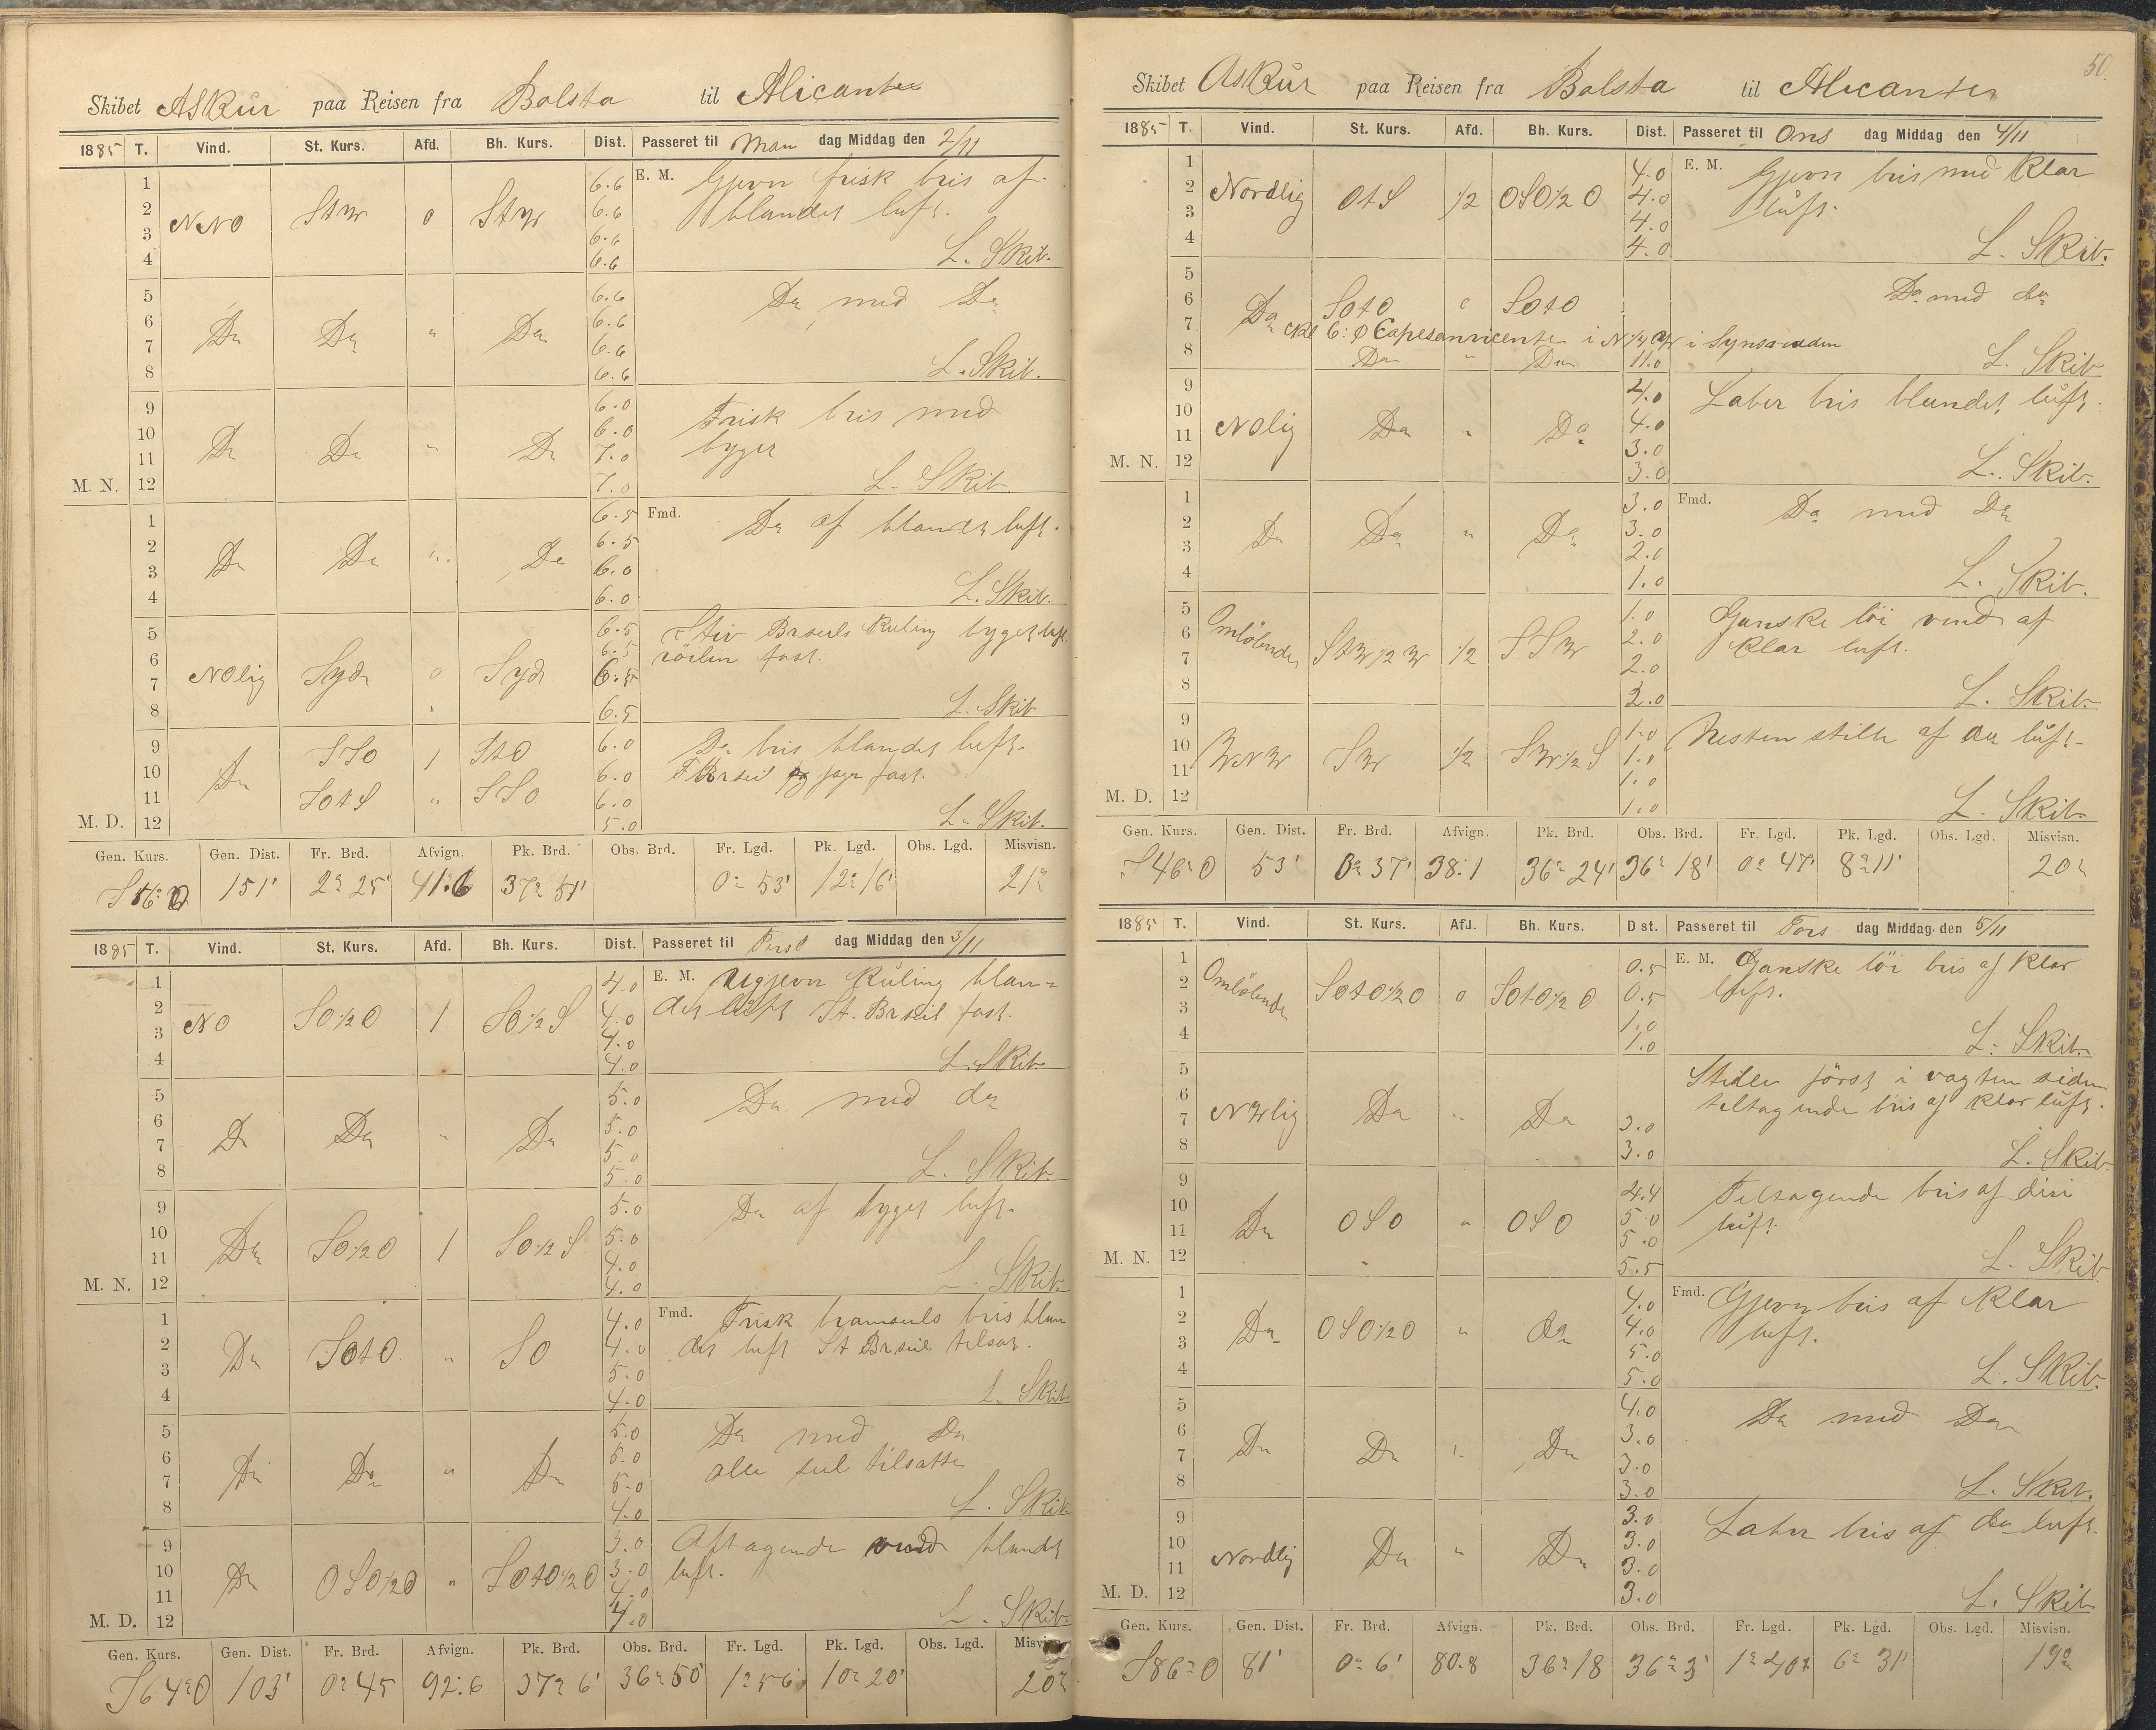 Skibet Askür paa Reisen fra Bolsta til Alicante
1885 T. Vind. St. Kurs. Afd. Bh. Kurs. Dist. Passeret til Man dag Middag den 2/11
1 6.6 E. M. Gjevn frisk bris af
2 NNO StW 0 StW 6.6 blandet luft.
3 6.6
4 6.6 L. Skib.
5 6.6 Do med Do
6 Do Do " Do 6.6
7 6.6
8 6.6 L. Skib.
9 6.0 Frisk bris med
10 6.0 byger
11 Do Do " Do 7.0
M. N. 12 7.0 L. Skib.
1 6.5 Fmd. Do af blandet luft.
2 6.5
3 Do Do " Do 6.0
4 6.0 L. Skib.
5 6.5 Stiv Brseils Kuling byget luft
6 6.5 röilen fast.
7 NOlig Syd 0 Syd 6.5
8 6.5 L. Skib
9 SSO 1 StO 6.0 Do bris blandet luft.
10 Do 6.0 og jager fast.
11 SOtS " SSO 6.0
M. D. 12 5.0 L. Skib.
Gen. Kurs. Gen. Dist. Fr. Brd. Afvign. Pk. Brd. Obs. Brd. Fr. Lgd. Pk. Lgd. Obs. Lgd. Misvisn.
S16°O 151' 2° 25' 41.6 37° 51' 0° 53' 12° 16' 21°
1885 T. Vind. St. Kurs. Afd. Bh. Kurs. Dist. Passeret til Tirs dag Middag den 3/11
1 4.0 E. M. Ugjevn Küling blan=
2 NO SO½O 1 SO½S 4.0 det lüft St. Brseil fast.
3 4.0
4 4.0 L. Skib
5 5.0 Do med do
6 5.0
7 Do Do " Do 5.0
8 5.0 L. Skib.
9 5.0 Do af byget luft.
10 5.0
11 Do SO½O 1 SO½S 4.0
M. N. 12 4.0 L. Skib.
1 4.0 Fmd. Frisk bramseils bris blan
2 Do SOtO " SO 4.0 det luft St Brseil tilsat.
3 5.0
4 4.0 L. Skib
5 5.0 Do med Do
6 5.0 alle seil tilsatte
7 Do Do " Do 5.0
8 4.0 L. Skib.
9 3.0 Aftagende vind blandet
10 Do OSO½O " SOtO½O 3.0 luft.
11 4.0
M. D. 12 4.0 L. Skib.
Gen. Kurs. Gen. Dist. Fr. Brd. Afvign. Pk. Brd. Obs. Brd. Fr. Lgd. Pk. Lgd. Obs. Lgd. Misvisn
S64°O 103' 0° 45 92.6 37° 6' 36° 50' 1° 56' 10° 20' 20°
50.
Skibet Askür paa Reisen fra Bolsta til Alicante
1885 T. Vind. St. Kurs. Afd. Bh. Kurs. Dist. Passeret til Ons dag Middag den 4/11
1 4.0 E. M. Gjevn bris med klar
2 Nordlig OtS ½ OSO½O 4.0 lüft.
3 4.0
4 4.0 L. Skib.
5 Do med do
6 Do SOtO " SOtO
7 Kl 6: Ø Capesanvicente i N½W i Synsranden
8 Do " Do 11.0 L. Skib
9 4.0 Laber bris blandet lüft.
10 4.0
11 NOlig Do " Do 3.0
M. N. 12 3.0 L. Skib.
1 3.0 Fmd. Do med Do
2 Do Do " Do 3.0
3 2.0
4 1.0 L. Skib.
5 1.0 Ganske löi vind af
6 Omlöbende StW½W ½ SSW 2.0 klar luft.
7 2.0
8 2.0 L. Skib.
9 1.0 Nesten stille af do lüft.
10 WNW SW ½ SW½S 1.0
11 1.0
M. D. 12 1.0 L. Skib.
Gen. Kurs. Gen. Dist. Fr. Brd. Afvign. Pk. Brd. Obs. Brd. Fr. Lgd. Pk. Lgd. Obs. Lgd. Misvisn.
S46°O 53' 0° 37' 38.1 36° 24' 36° 18' 0° 47' 8° 11' 20°
1885 T. Vind. St. Kurs. Afd. Bh. Kurs. D st. Passeret til Tors dag Middag den 5/11
1 0.5 E. M. Ganske löi bris af klar
2 Omlöbende SOtO½O 0 SOtO½O 0.5 luft.
3 1.0
4 1.0 L. Skib.
5 Stille först i vagten siden
6 tiltagende bris af klar lüft.
7 NWlig Do " Do 3.0
8 3.0 L. Skib.
9 4.4 Tiltagende bris af disi
10 Do OSO " OSO 5.0 luft.
11 5.0
M. N. 12 5.5 L. Skib
1 4.0 Fmd. Gjevn bris af klar
2 Do OSO½O " do 4.0 luft.
3 5.0
4 5.0 L. Skib.
5 4.0 Do med Do
6 3.0
7 Do Do " Do 3.0
8 3.0 L. Skib.
9 3.0 Laber bris af do luft.
10 3.0
11 Nordlig Do " Do 3.0
M. D. 12 3.0 L. Skib
Gen. Kurs. Gen. Dist. Fr. Brd. Afvign. Pk. Brd. Obs. Brd. Fr. Lgd. Pk. Lgd. Obs. Lgd. Misvisn.
S86°O 81' 0° 6' 80.8 36° 18 36° 3' 1° 40' 6° 31' 19°